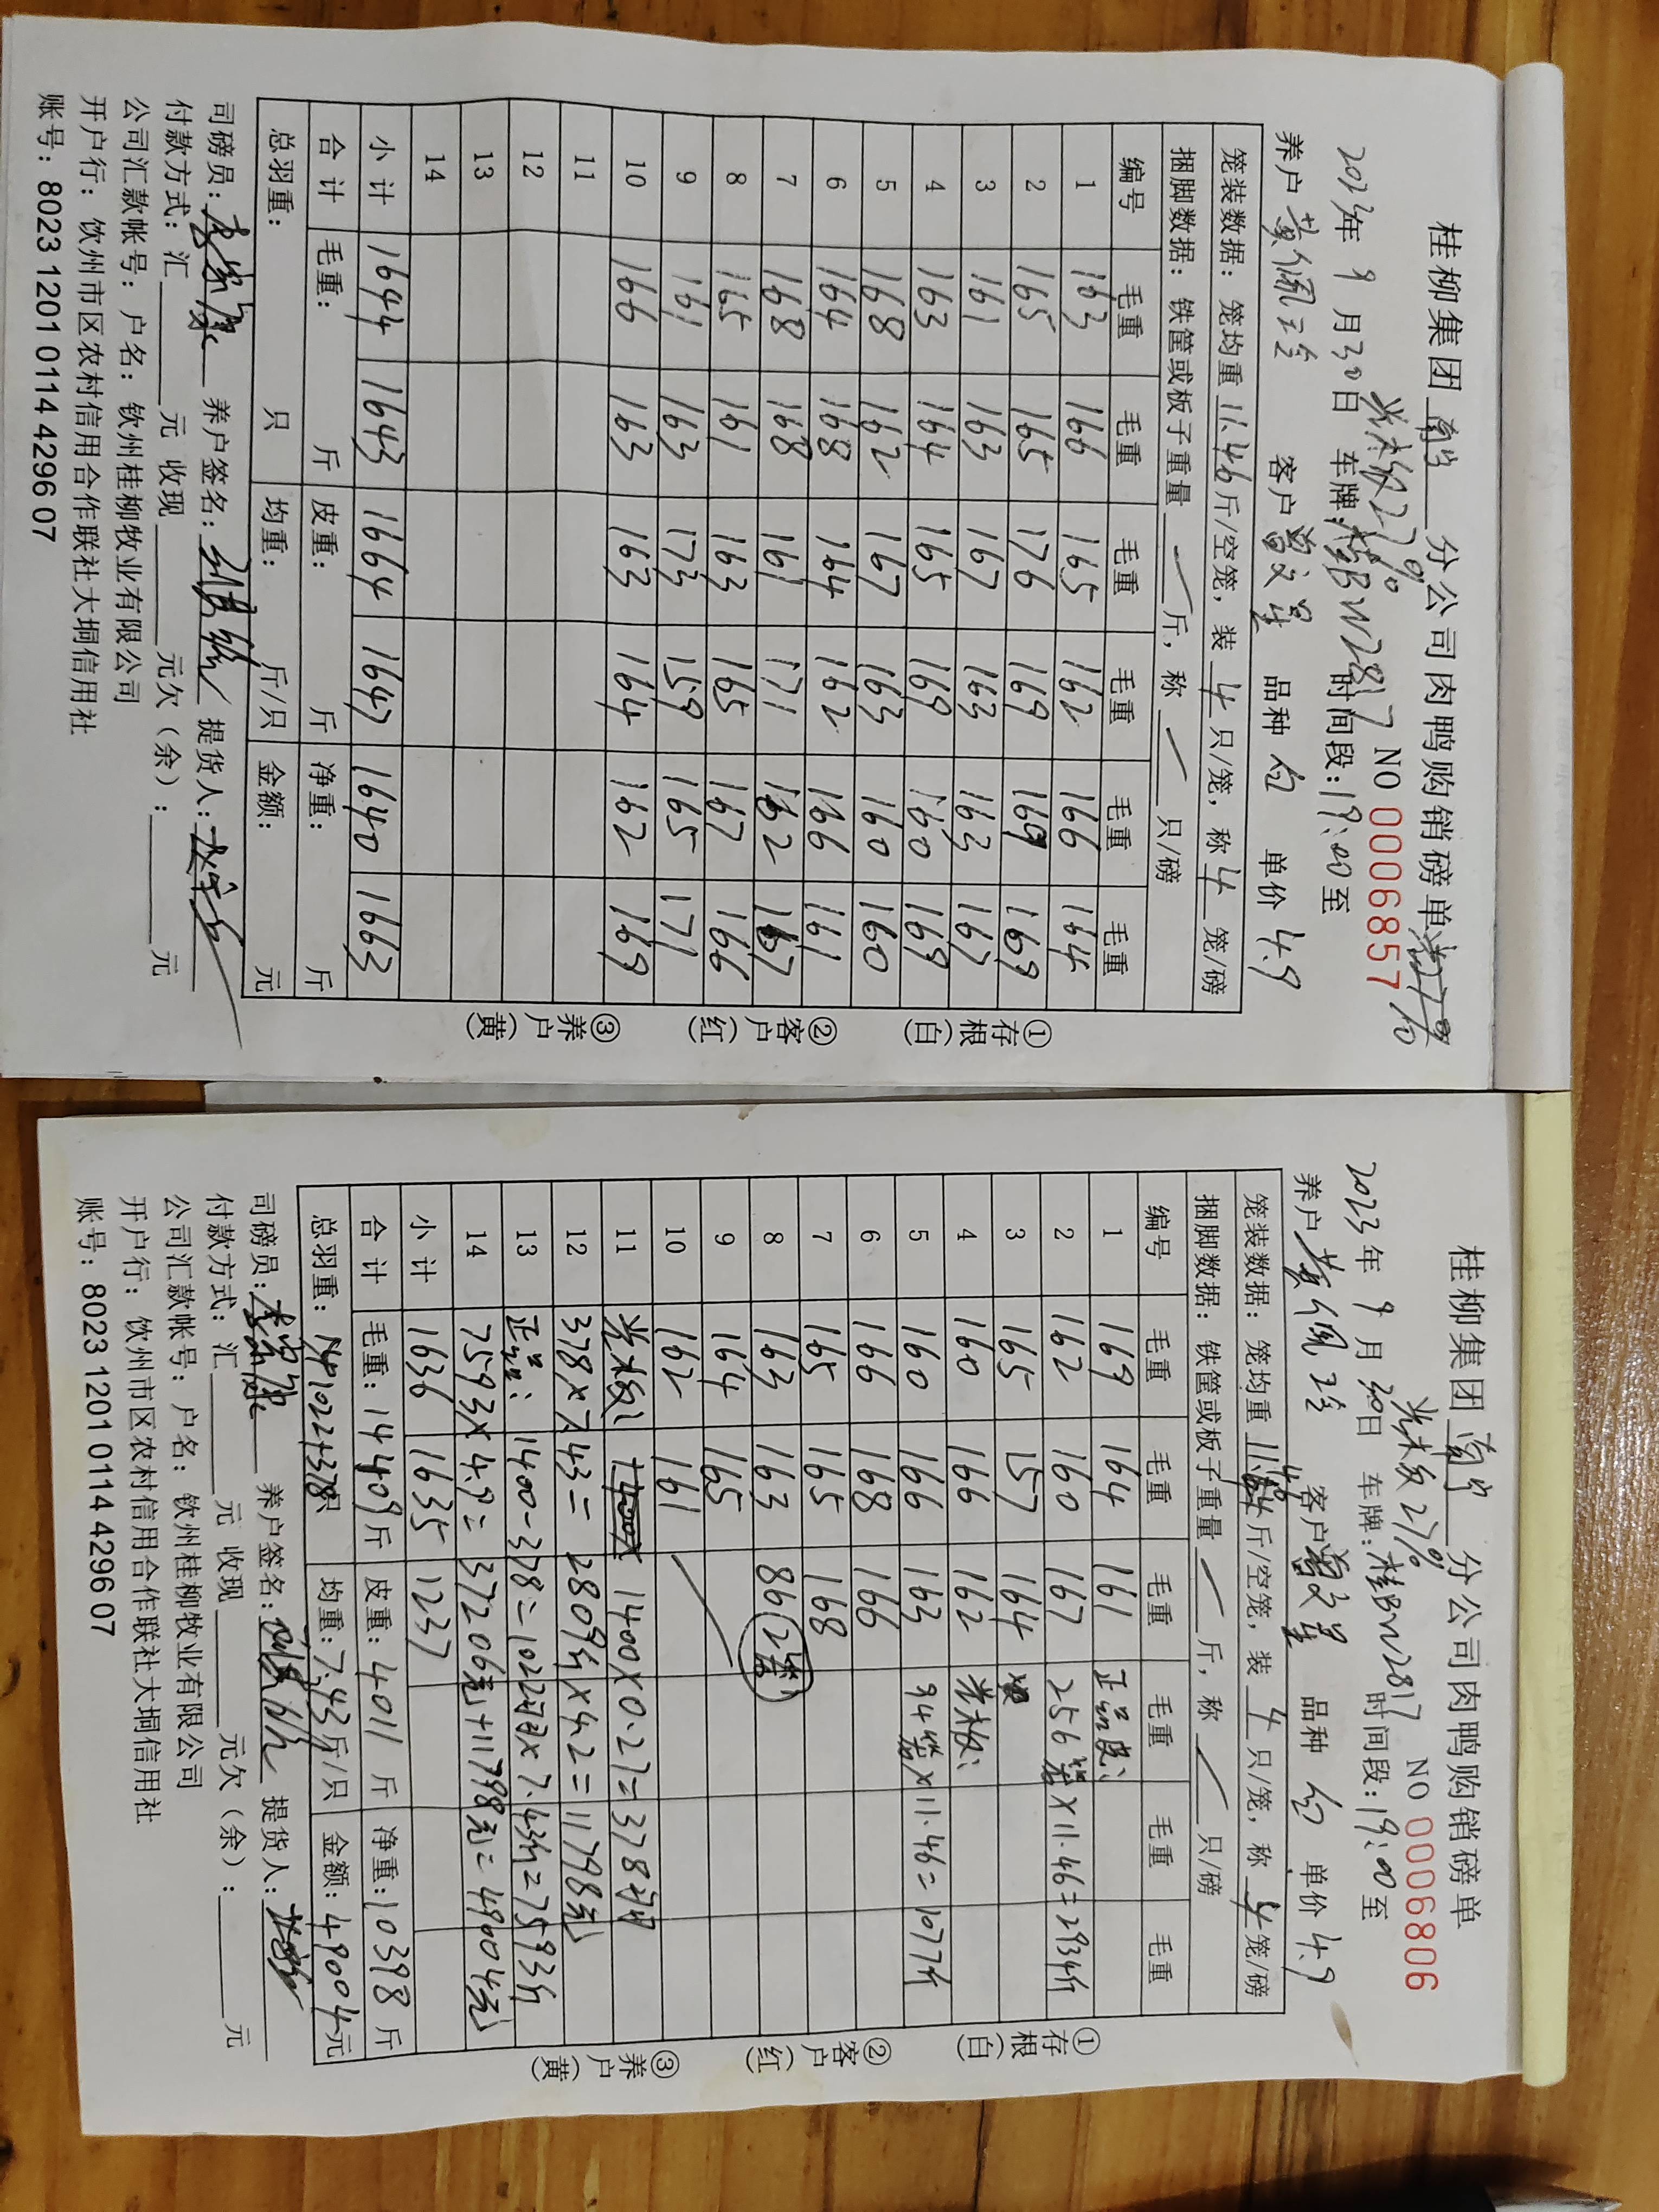 桂柳集团南宁分公司肉鸭购销磅单
光板27%
NO 0006857
2023年9月30日 车牌:桂BW2817 时间段:19:00至
养户 黄佩玲 客户 曾文星 品种 白 单价 4.9
笼装数据: 笼均重 11.46 斤/空笼, 装 4 只/笼, 称 4 笼/磅
捆脚数据: 铁筐或板子重量 / 斤, 称 / 只/磅
编号 毛重 毛重 毛重 毛重 毛重 毛重
1 163 166 165 162 166 164
2 165 165 176 169 169 169
3 161 163 167 163 163 167
4 163 164 165 169 160 169
5 168 162 167 163 160 160
6 164 168 164 162 166 161
7 168 168 161 171 162 167
8 165 161 163 165 167 166
9 161 163 173 159 165 171
10 166 163 163 164 162 169
11
12
13
14
小计 1644 1643 1664 1647 1640 1663
合计 毛重: 斤 皮重: 斤 净重: 斤
总羽重: 只 均重: 斤/只 金额: 元
司磅员: 养户签名: 提货人:
付款方式: 汇 元 收现 元欠(余): 元
公司汇款帐号: 户名: 钦州桂柳牧业有限公司
开户行: 钦州市区农村信用合作联社大垌信用社
账号: 8023 1201 0114 4296 07
①存根(白)
②客户(红)
③养户(黄)
桂柳集团南宁分公司肉鸭购销磅单
光板27%
NO 0006806
2023年9月30日 车牌:桂BW2817 时间段:19:00至
养户 黄佩玲 客户 曾文星 品种 白 单价 4.9
笼装数据: 笼均重 11.46 斤/空笼, 装 4 只/笼, 称 4 笼/磅
捆脚数据: 铁筐或板子重量 / 斤, 称 / 只/磅
编号 毛重 毛重 毛重 毛重 毛重 毛重
1 169 164 161 正品皮:
2 162 160 167 256笼×11.46=2934斤
3 165 157 164
4 160 166 162 光板:
5 160 166 163 94笼×11.46=1077斤
6 166 168 166
7 165 165 168
8 163 163 86(2笼)
9 164 165
10 162 161
11 光板: 1400×0.27=378羽
12 378×7.43=2809斤×4.2=11798元
13 正品: 1400-378=1022羽×7.43斤=7593斤
14 7593×4.9=37206元+11798元=49004元
小计 1636 1635 1237
合计 毛重: 14409斤 皮重: 4011 斤 净重: 10398 斤
总羽重: 1022+378只 均重: 7.43斤/只 金额: 49004元
司磅员: 养户签名: 提货人:
付款方式: 汇 元 收现 元欠(余): 元
公司汇款帐号: 户名: 钦州桂柳牧业有限公司
开户行: 钦州市区农村信用合作联社大垌信用社
账号: 8023 1201 0114 4296 07
①存根(白)
②客户(红)
③养户(黄)